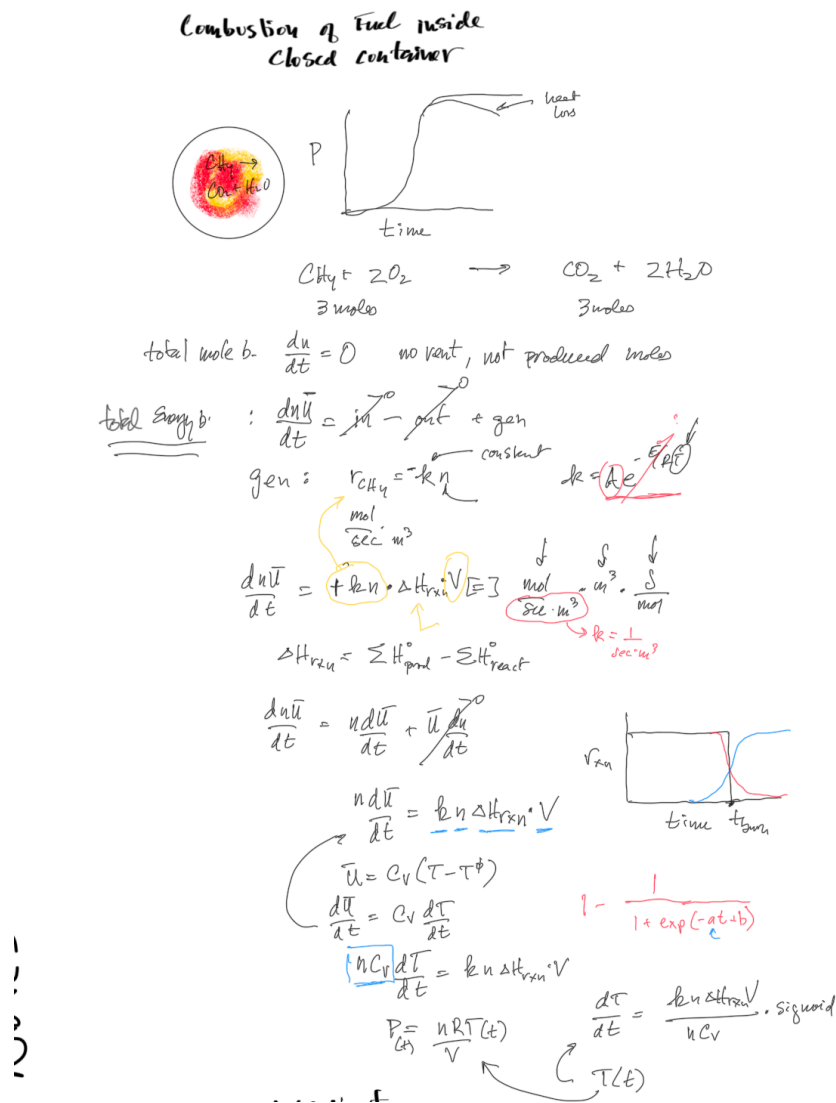 Combustion of Fuel inside
Closed container
heat
loss
P
CH4 →
CO2 + H2O
time
CH4 + 2O2 → CO2 + 2H2O
3 moles 3 moles
total mole b. dn/dt = 0 no vent, not produced moles
total Energy b. : dnū/dt = in→0 - out→0 + gen
constant
gen : rCH4 = -kn k = A e^-E/RT
mol/sec·m³
dnū/dt = +kn · ΔHrxn · V [≡] mol/sec·m³ · m³ · J/mol
→ k = 1/sec·m³
ΔHrxn = ΣH°prod - ΣH°react
dnū/dt = n dū/dt + ū dn/dt→0
rxn
time tburn
n dū/dt = kn ΔHrxn · V
ū = Cv (T - T^ϕ)
dū/dt = Cv dT/dt
1 - 1/(1 + exp(-at+b))
c
nCv dT/dt = kn ΔHrxn · V
dT/dt = kn ΔHrxn V/nCv · sigmoid
P(t) = nRT(t)/V
T(t)